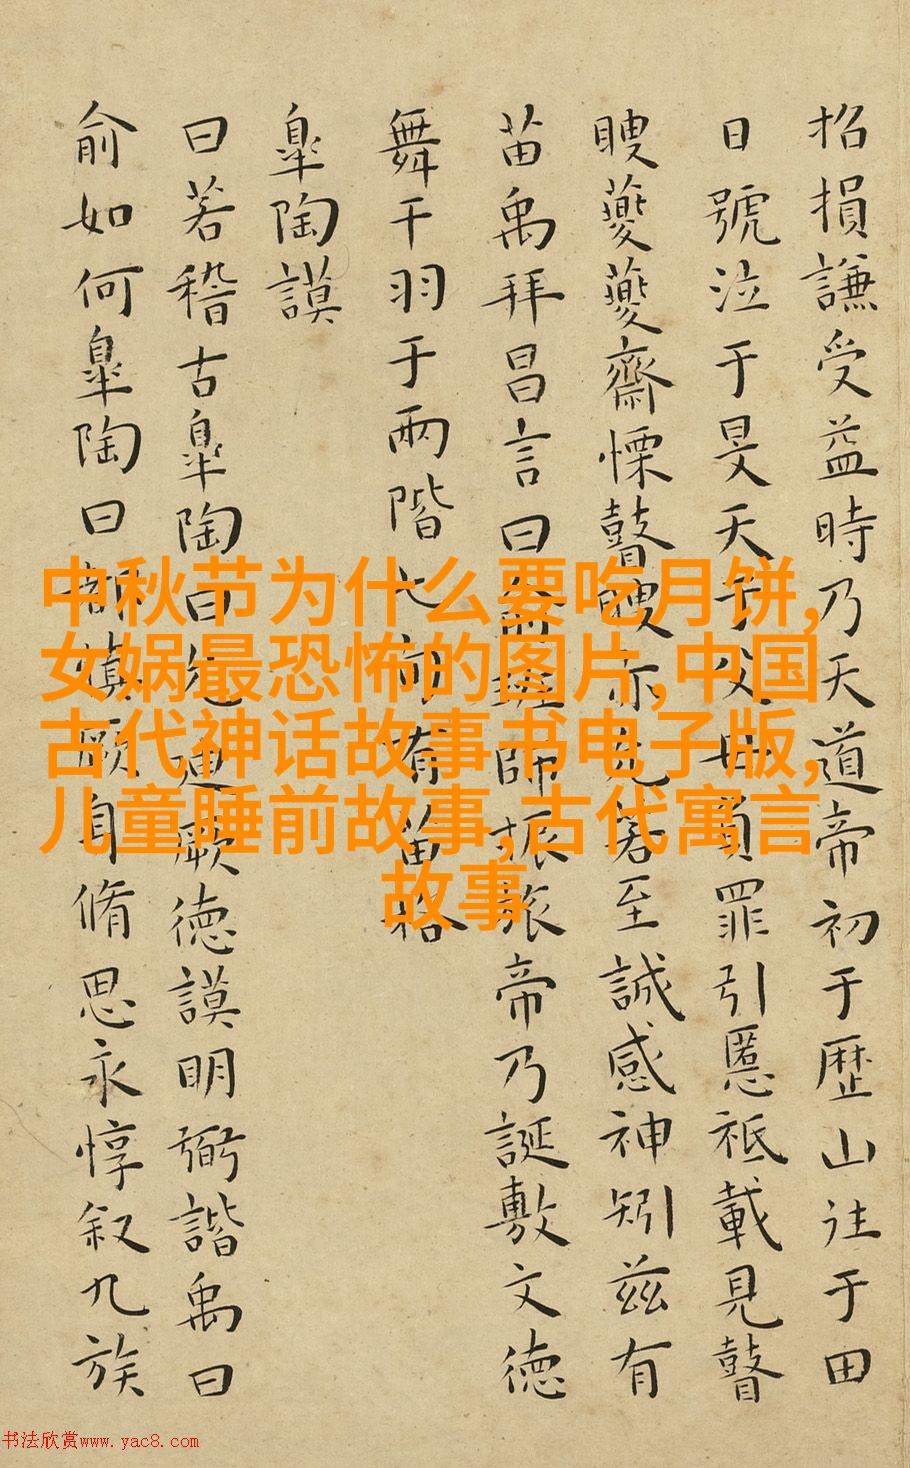 招損謙受益時乃天道帝初于歴山往于田
日號泣于旻天于父母負罪引慝祗載見瞽
瞍夔夔齋慄瞽瞍亦允若至諴感神矧茲有
苗禹拜昌言曰俞班師振旅帝乃誕敷文德
舞干羽于兩階七旬有苗格
皐陶謨
曰若稽古皐陶曰允迪厥德謨明弼諧禹曰
俞如何皐陶曰都慎厥身脩思永惇叙九族
中秋节为什么要吃月饼,
女娲最恐怖的图片,中国
古代神话故事书电子版,
儿童睡前故事,古代寓言
故事
书法欣赏www.yac8.com